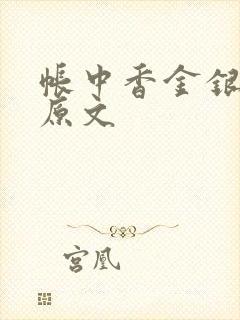 帐中香金银
原文
宫凰